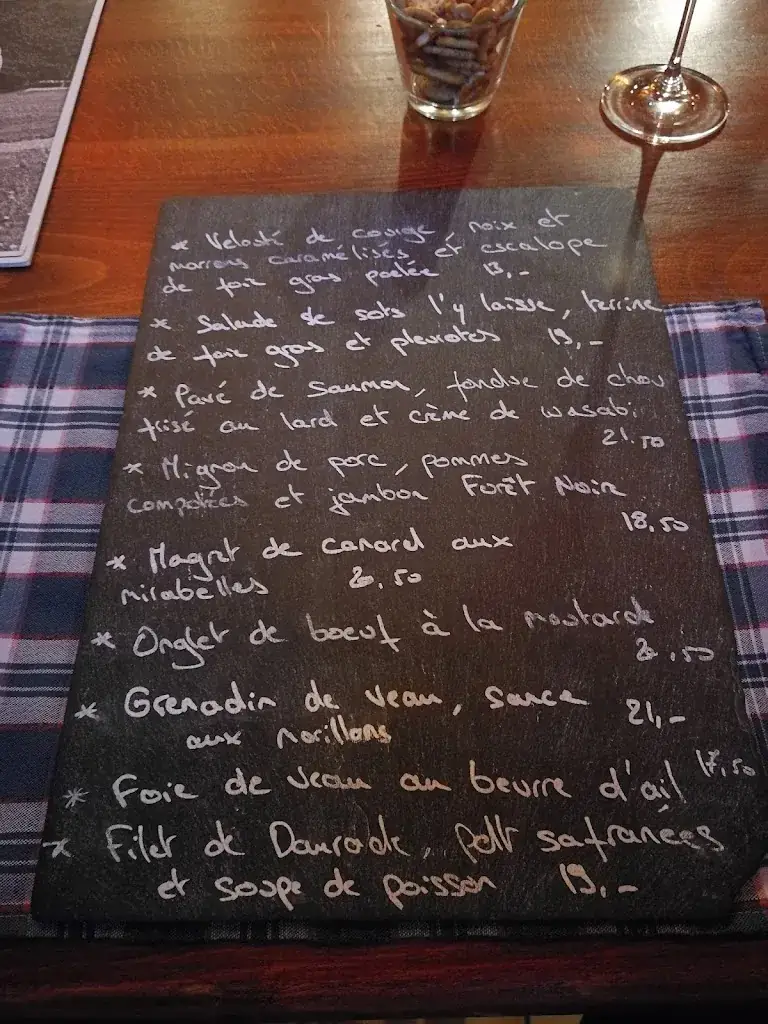 * Velouté de courge, noix et
marrons caramélisés et escalope
de foie gras poelée 13,-
* Salade de sots l'y laisse, terrine
de foie gras et pleurotes 19,-
* Pavé de Saumon, fondue de chou
frisé au lard et crème de wasabi
21.50
* Mignon de porc, pommes
compotées et jambon Forêt Noire
18,50
* Magret de canard aux
mirabelles 20.50
* Onglet de boeuf à la moutarde
20.50
* Grenadin de veau, sauce 21,-
aux morillons
* Foie de veau au beurre d'ail 17,50
* Filet de Daurade, safranées
et soupe de poisson 19,-